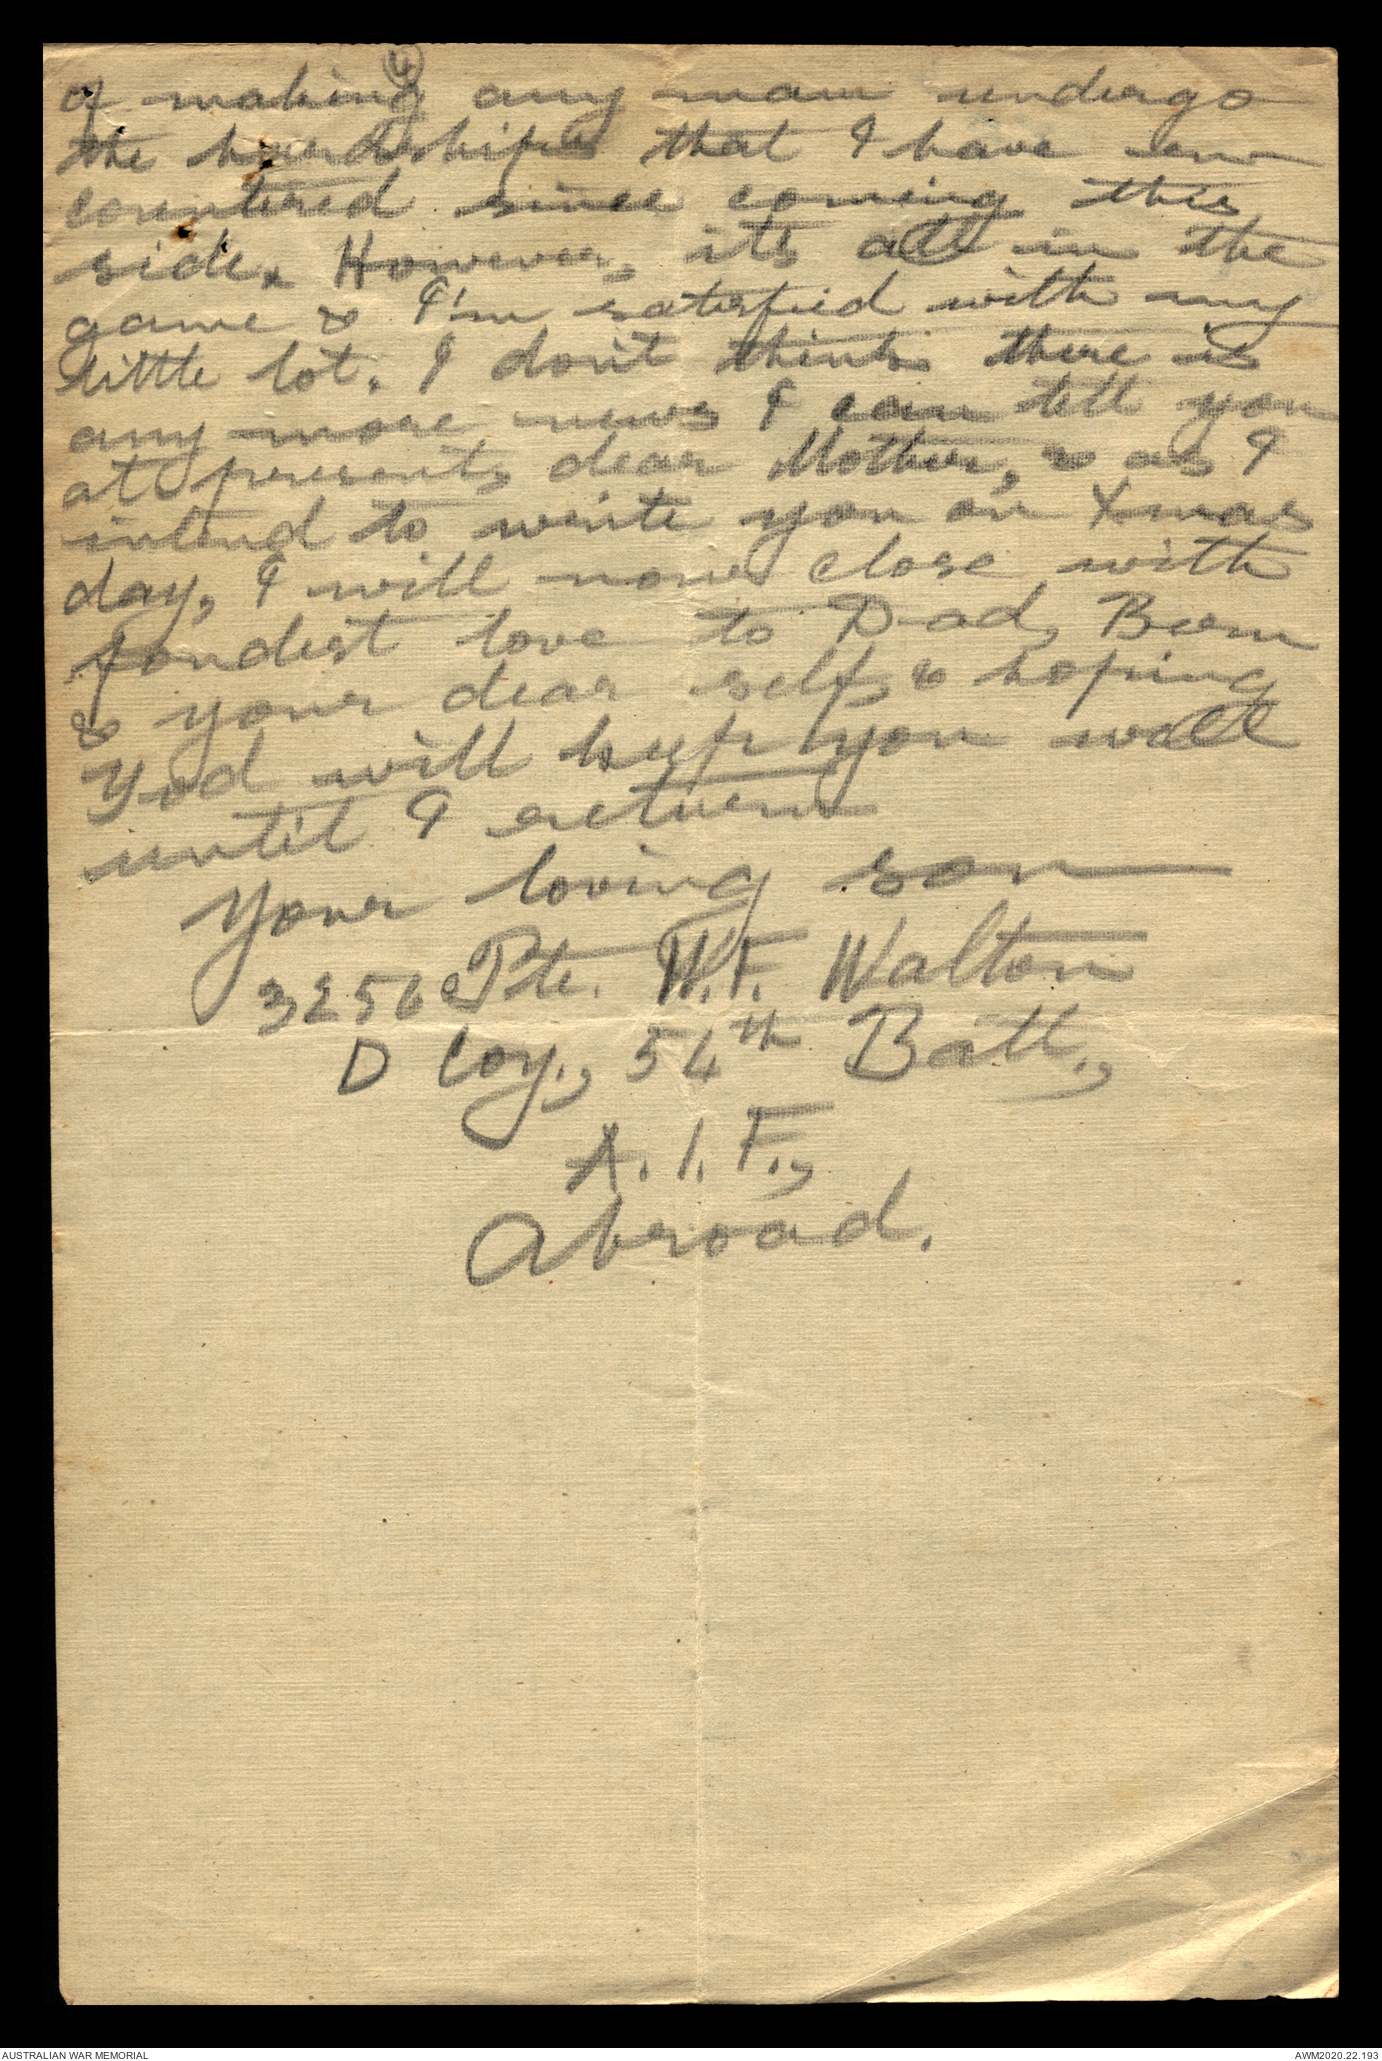 4
of making any man undergo
the hardships that I have en-
countered since coming this
side. However, its all in the
game & I'm satisfied with my
little lot. I don't think there is
any more news I can tell you
at present, dear Mother, & as I
intend to write you on Xmas
day, I will now close with
fondest love to Dad, Bern
& your dear self, & hoping
God will keep you well
until I return
Your loving son
3256 Pte. W.F. Walton
D Coy., 54th Batt.,
A.I.F.,
Abroad.
AUSTRALIAN WAR MEMORIAL
AWM2020.22.193